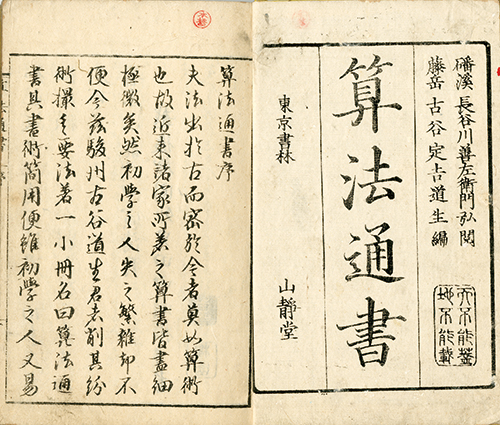 磻溪 長谷川善左衛門弘閲
藤岳 古谷定吉道生編
天不能蓋
地不能載
算法通書
東京書林
山靜堂
算法通書序
夫法出於古而密於今者莫如算術
也故近来諸家所著之算書皆盡細
極微矣然初学之人失之繁雑却不
便今茲駿州古谷道生君去削其紛
術撮其要法著一小冊名曰算法通
書其書術簡用便雖初學之人又易